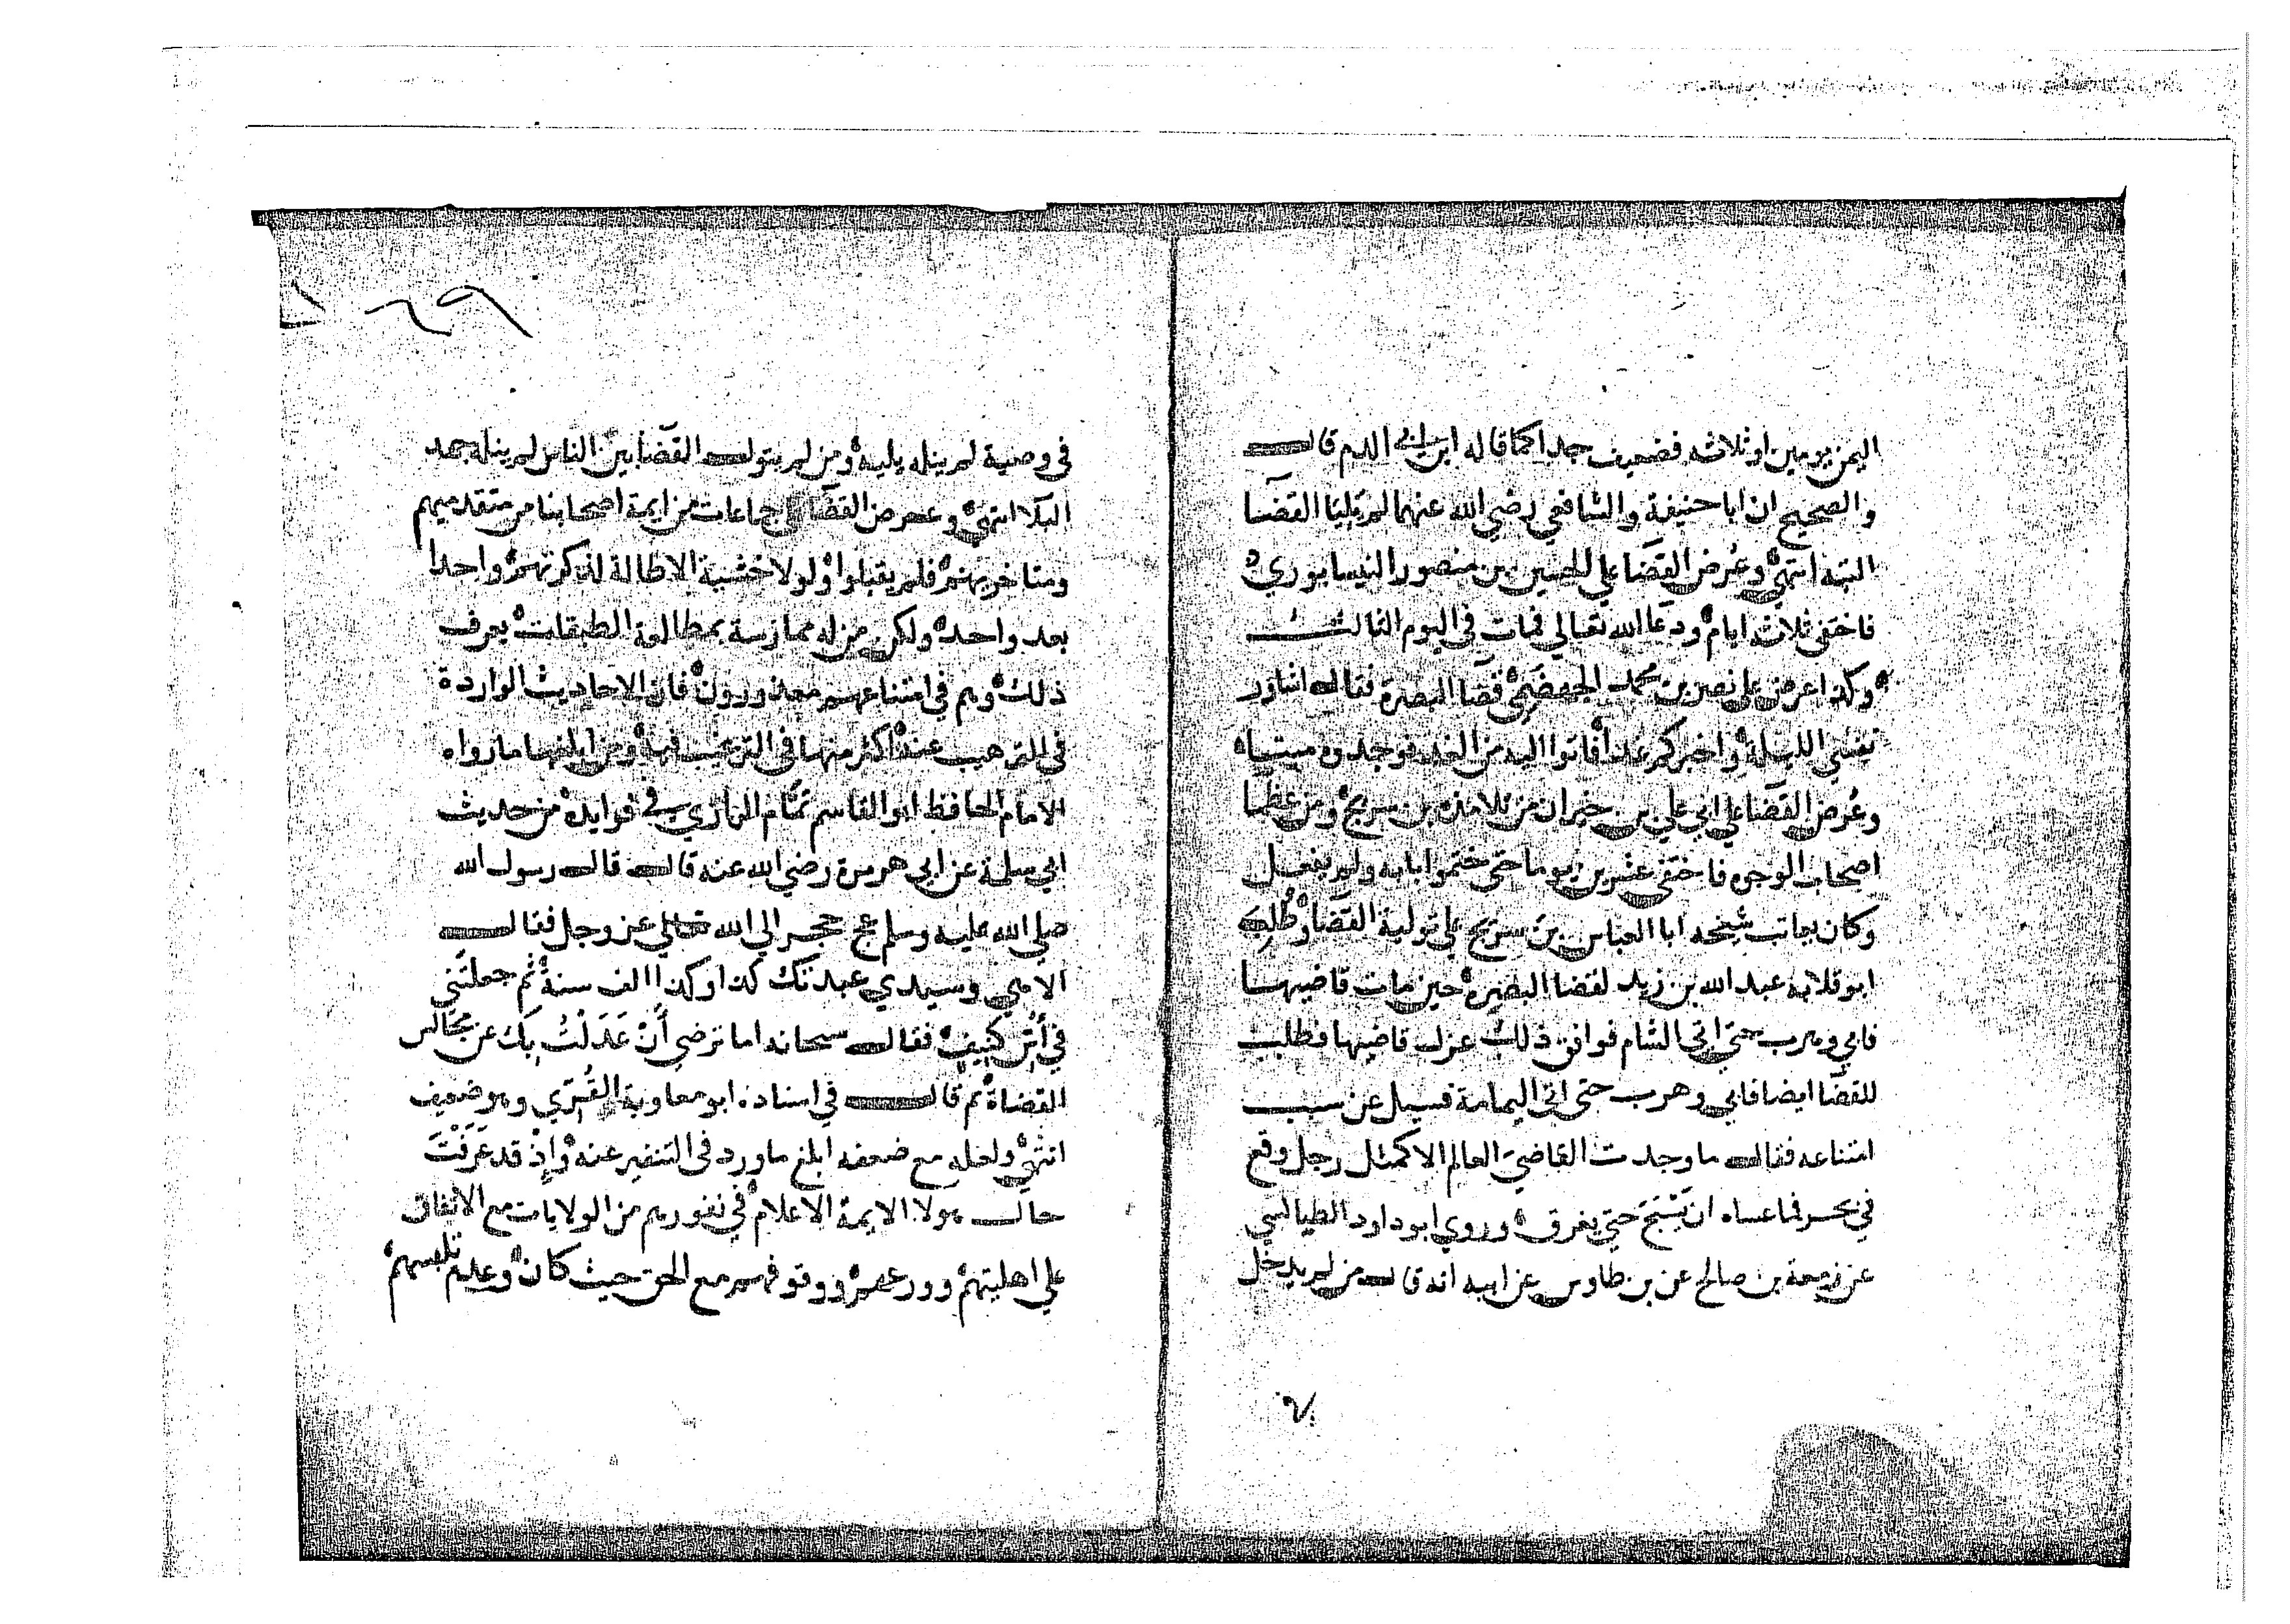 اليمن يومين او ثلاثه فضعيف جدا كما قاله ابن ابي الدم قال
والصحيح ان ابا حنيفة والشافعي رضي الله عنهما لم يليا القضا
البته انتهي وعُرض القضا علي الحسين بن منصور النيسابوري
فاختفي ثلاثه ايام ودعا الله تعالي فمات في اليوم الثالث
وكذا عرض علي نصر بن محمد الجهضمي قضا البصرة فقال اشاور
نفسي الليلة واخبركم غدا فاتوا اليه من الغد فوجدوه ميتا
وعُرض القضا علي ابي علي بن خيران من تلامذه بن سريج ومن عظما
اصحاب الوجوه فاختفي عشرين يوما حتي ختموا بابه ولم يفعل
وكان يعاتب شيخه ابا العباس بن سريج علي تولية القضا وطُلب
ابو قلابه عبد الله بن زيد لقضا البصره حين مات قاضيها
فابي وهرب حتي اتي الشام فوافق ذلك عزل قاضيها فطلب
للقضا ايضا فابي وهرب حتي اتي اليمامة فسيل عن سبب
امتناعه فقال ما وجدت القاضيَ العالم الا كمثل رجل وقع
في بحر فما عساه ان يَسْبَح حتي يغرق وروي ابو داود الطيالسي
عن زمعة بن صالح عن بن طاوس عن ابيه انه قال من لم يدخل
في وصية لم ينله بليه ومن لم يتول القضا بين الناس لم ينله جهد
البلا انتهي وعرض القضا جماعات من ايمة اصحابنا من متقدميهم
ومتاخريهم فلم يقبلوا ولولا خشية الاطالة لذكرتهم واحدا
بعد واحد ولكن من له ممارسة بمطالعة الطبقات يعرف
ذلك وهم في امتناعهم معذورون فان الاحاديث الواردة
في الترهيب عنه اكثر منها في الترغيب فيه ومن ابلغها ما رواه
الامام الحافظ ابو القاسم تمّام الرازي في فوايده من حديث
ابي سلمة عن ابي هريرة رضي الله عنه قال قال رسول الله
صلي الله عليه وسلم عج حجر الي الله تعالي عز وجل فقال
الاهي وسيدي عبدتك كذا وكذا الف سنة ثم جعلتني
في أُسّ كنيف فقال سبحانه اما ترضي أَنْ عَدَلْتُ بِكَ عن مجالس
القضاة ثم قال في اسناده ابو معاوية القُتَري وهو ضعيف
انتهي ولعله مع ضعفه ابلغ ما ورد في التنفير عنه وإذْ قد عَرَفْتَ
حال هولا الايمة الاعلام في نفورهم من الولايات مع الاتفاق
علي اهليتهم وورعهم ووقوفهم مع الحق حيث كان وعدم تلبسهم